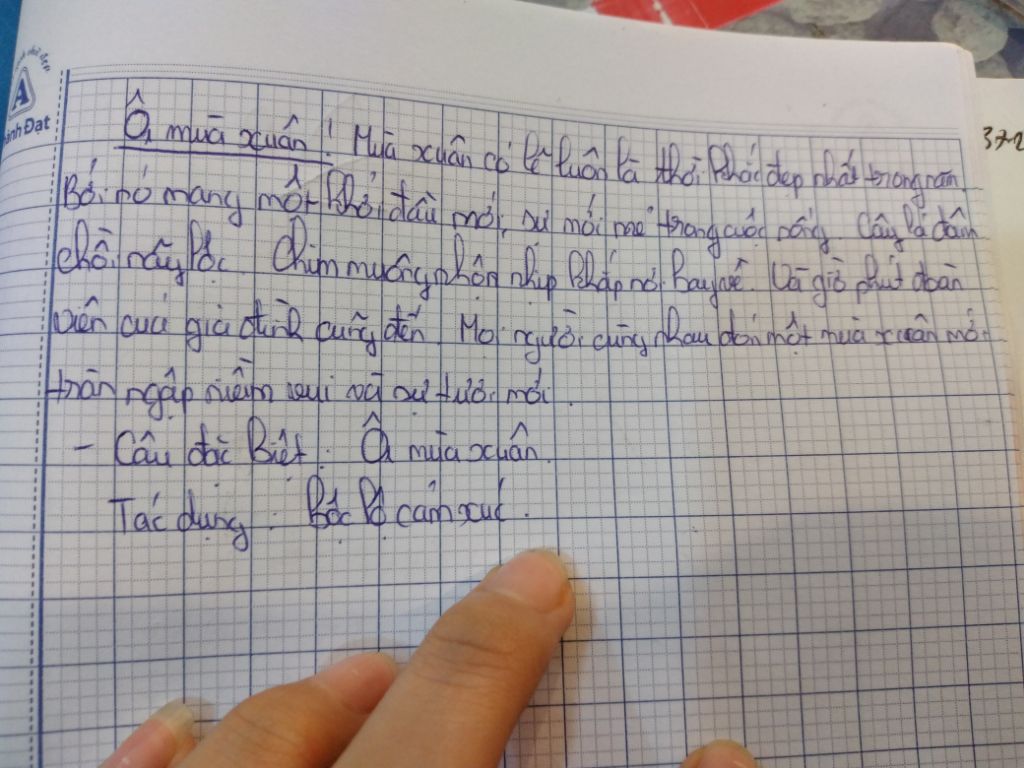 Ôi mùa xuân! Mùa xuân có lẽ luôn là thời khắc đẹp nhất trong năm
Bởi nó mang một khởi đầu mới, sự mới mẻ trong cuộc sống. Cây lá đâm
chồi nảy lộc. Chim muông nhộn nhịp khắp nơi bay về. Và giờ phút đoàn
viên của gia đình cũng đến. Mọi người cùng nhau đón một mùa xuân mới
tràn ngập niềm vui và sự tươi mới.
- Câu đặc biệt: Ôi mùa xuân.
Tác dụng: Bộc lộ cảm xúc.
A
ành Đạt
37-2